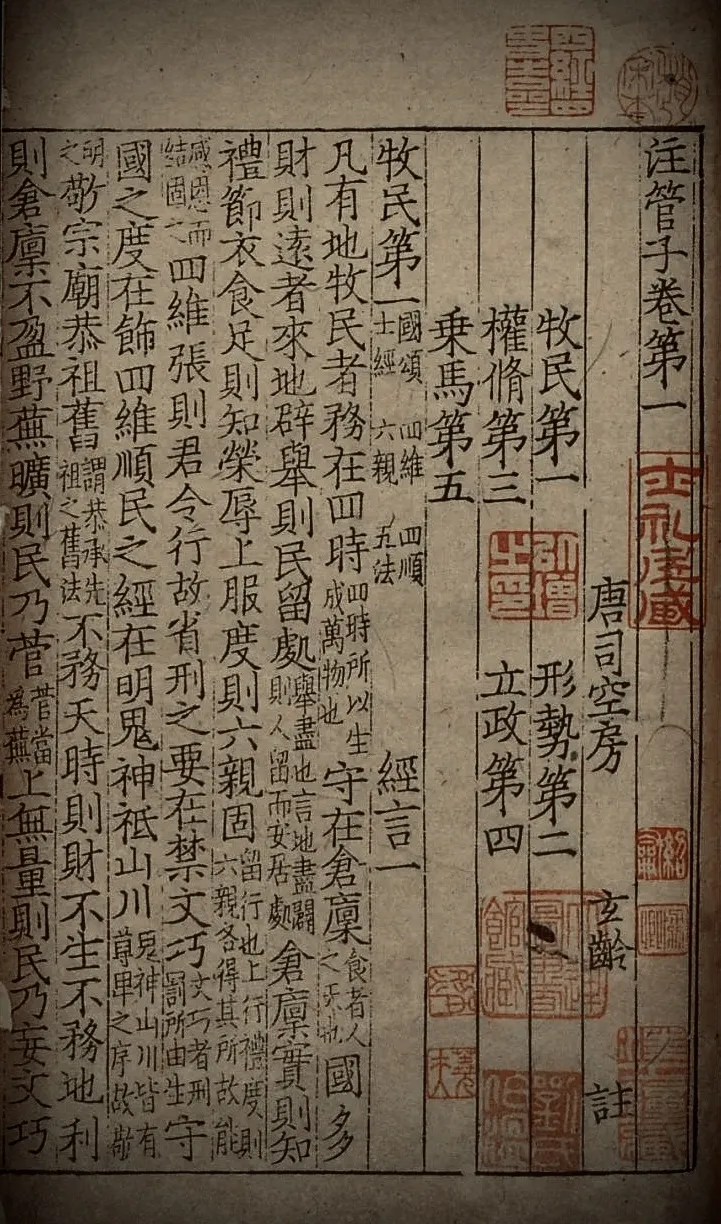 注管子卷第一
唐司空房玄齡註
牧民第一形勢第二
權脩第三立政第四
乗馬第五
牧民第一國頌四維四順士經六親五法經言一
凡有地牧民者務在四時四時所以生成萬物也守在倉廩食者人之天也國多
財則遠者來地辟舉則民留處舉盡也言地盡闢則人留而安居處倉廩實則知
禮節衣食足則知榮辱上服度則六親固行也上行禮度則六親各得其所故能
感恩而結固之四維張則君令行故省刑之要在禁文巧文巧者刑罰所由生守
國之度在飾四維順民之經在明鬼神祗山川鬼神山川皆有尊卑之序故敬
明之敬宗廟恭祖舊謂恭承先祖之舊法不務天時則財不生不務地利
則倉廩不盈野蕪曠則民乃菅菅當為蕪上無量則民乃妄文巧
士礼居藏